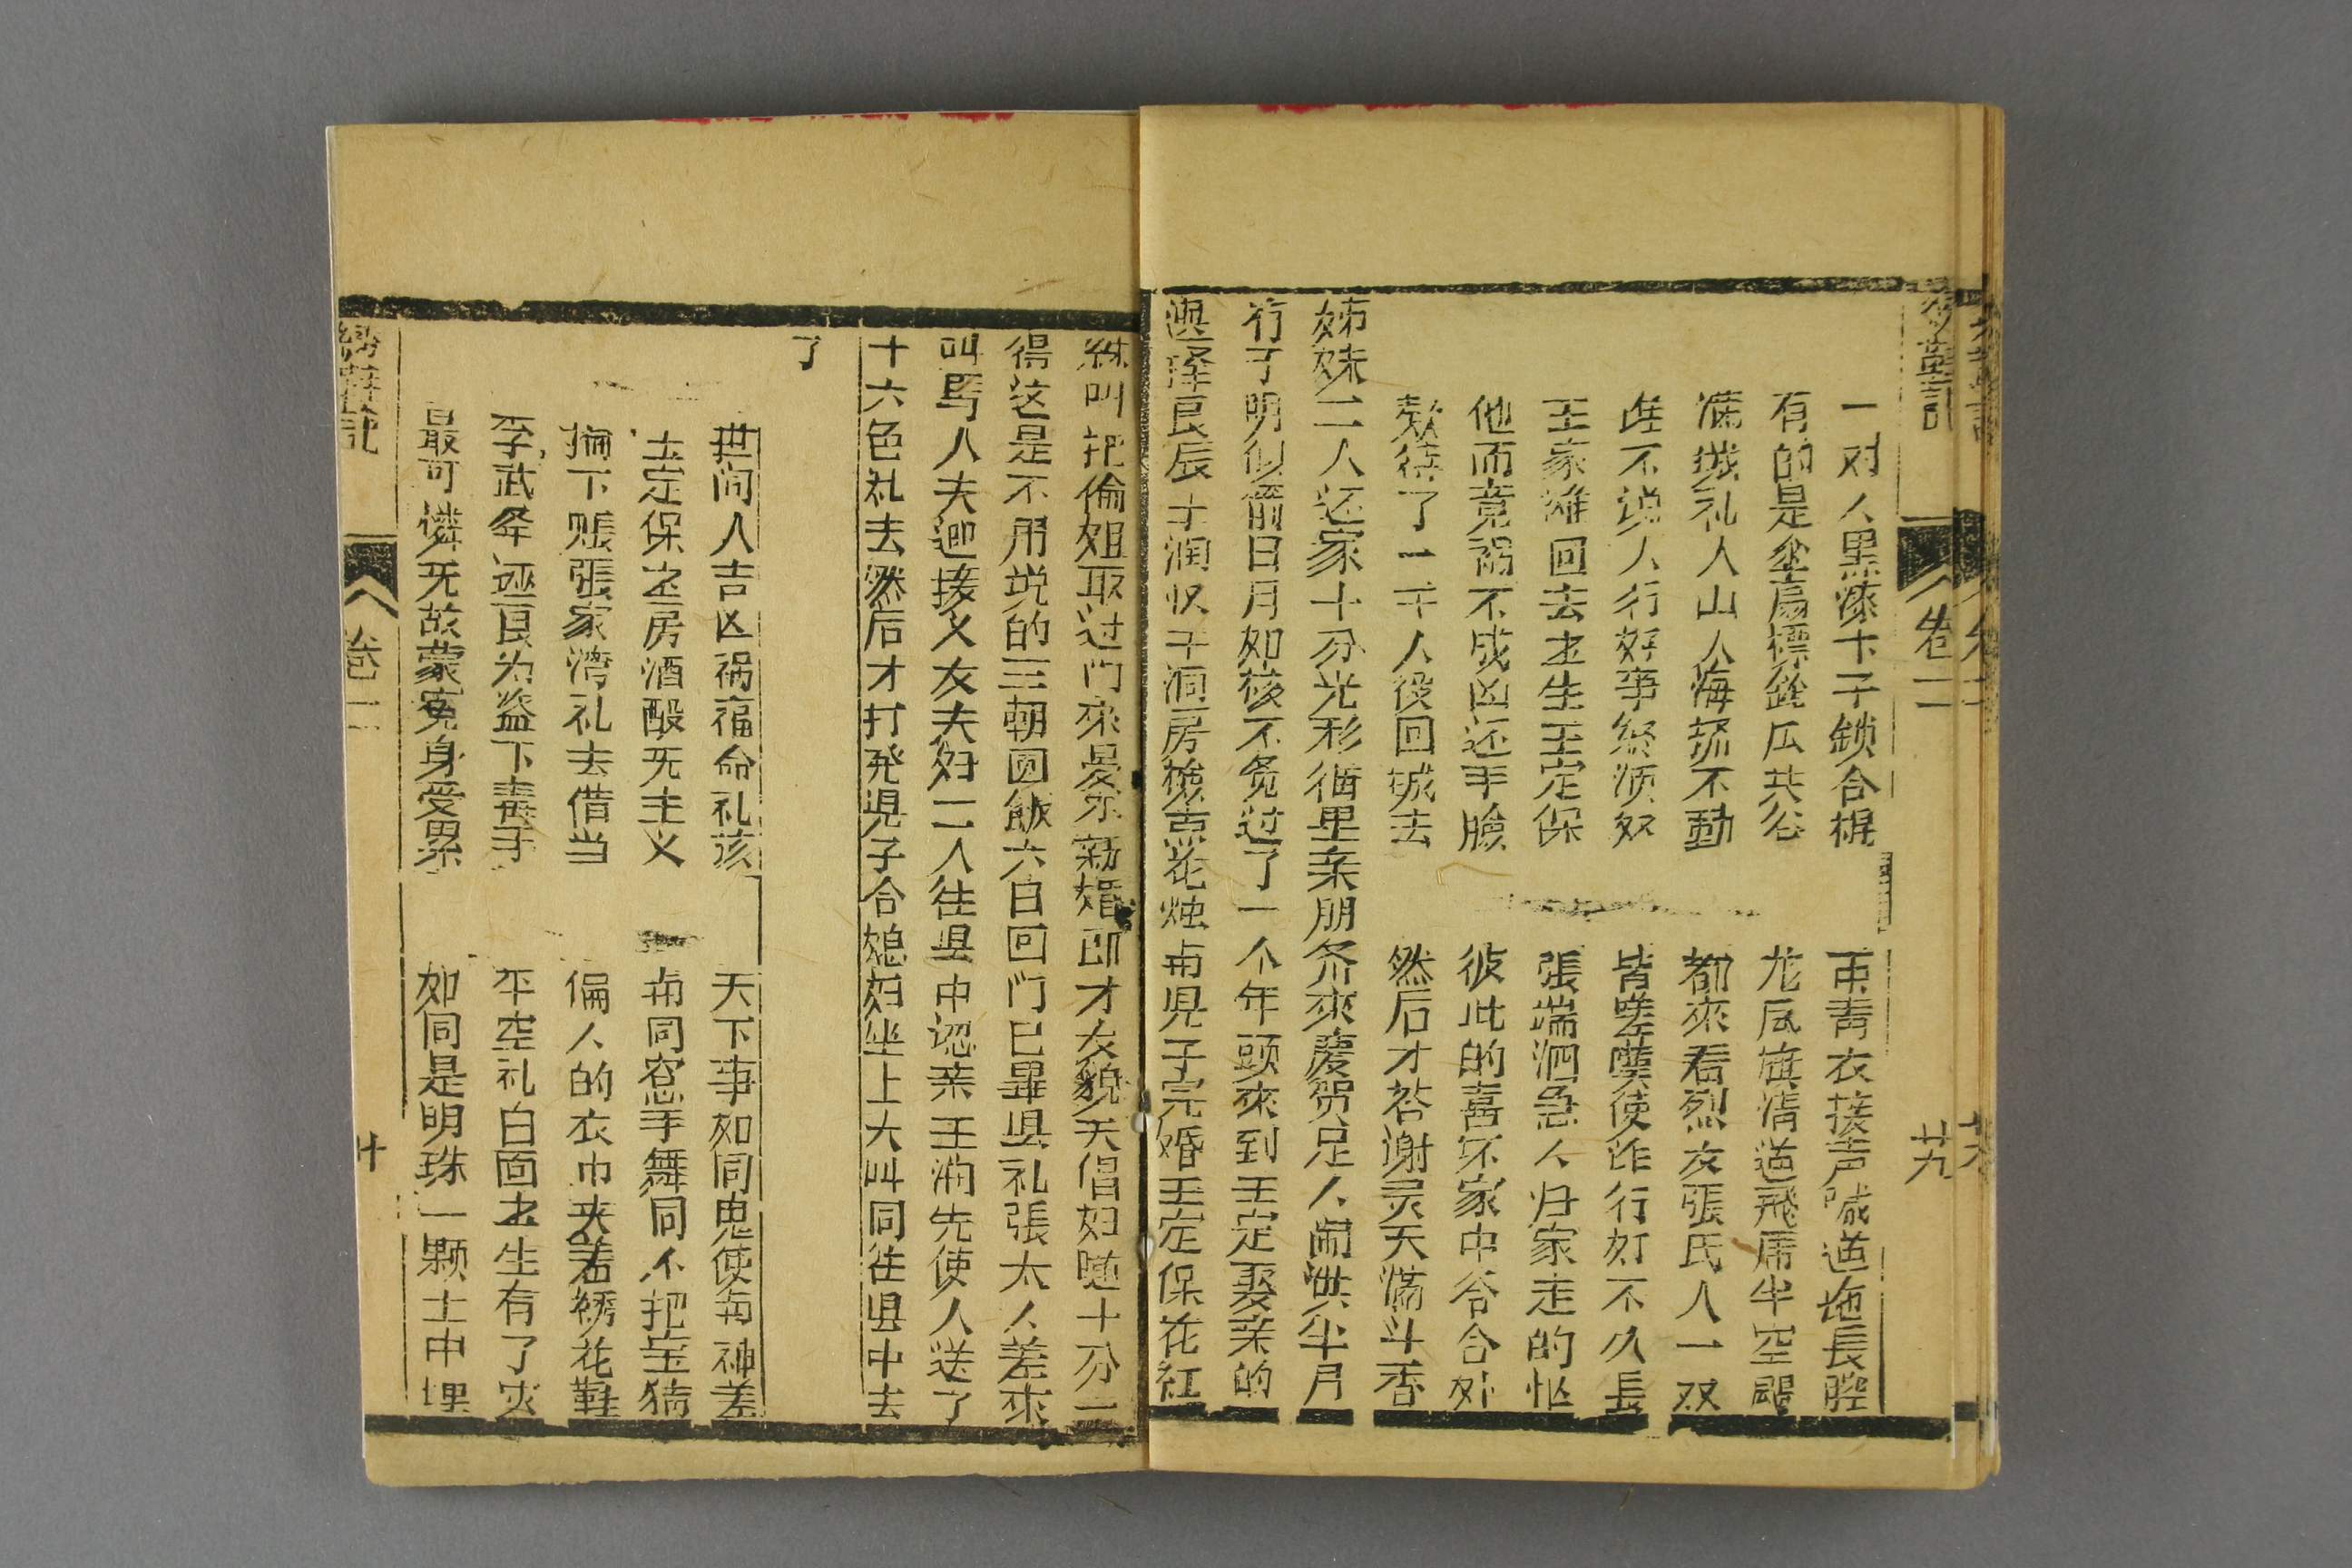 卷二
廿九
一对人黑漆卞子鎖合棍 両青衣接声喊道拖長腔
有的是傘扇標𨧱瓜共公 龙凤旗清道飛虎半空
满城礼人山人海挤不動 都來看烈女張氏人一双
谁不说人行好事終须 皆嗟嘆使诈行奸不久長
王家滩回去生王定保 張端泗急人归家走的忙
他而竟祸不成凶还手臉 彼此的喜坏家中合合
款待了一干人役回城去 然后才荅谢灵天满斗香
姊妹二人还家十分光彩循里亲朋斉來慶贺足人闹洪半月
行了明似箭日月如梭不觉过了一个年頭來到王定娶亲的
選择良辰王润収干洞房檢点花烛両児子完婚王定保花红
叫把倫姐取过门來晏尔新婚郎才女貌夫倡妇随十分一
得这是不用说的三朝圆飯六日回门已畢县礼張太人差來
叫馬人夫迎接义女夫妇二人往县中認亲王润先使人送了
十六色礼去然后才打発児子合媳妇坐上大叫同往县中去
了
世间人吉凶祸福命礼该 天下事如同鬼使与神差
王定保之房酒酘死主义 両同窓手舞同个把宝猜
掤下賬張家湾礼去借当 偏人的衣巾夹着绣花鞋
李武举诬良为盗下毒手 平空礼白面生有了灾
最可憐无故蒙寃身受累 如同是明珠一颗土中埋
绣鞋记
卷二
卅